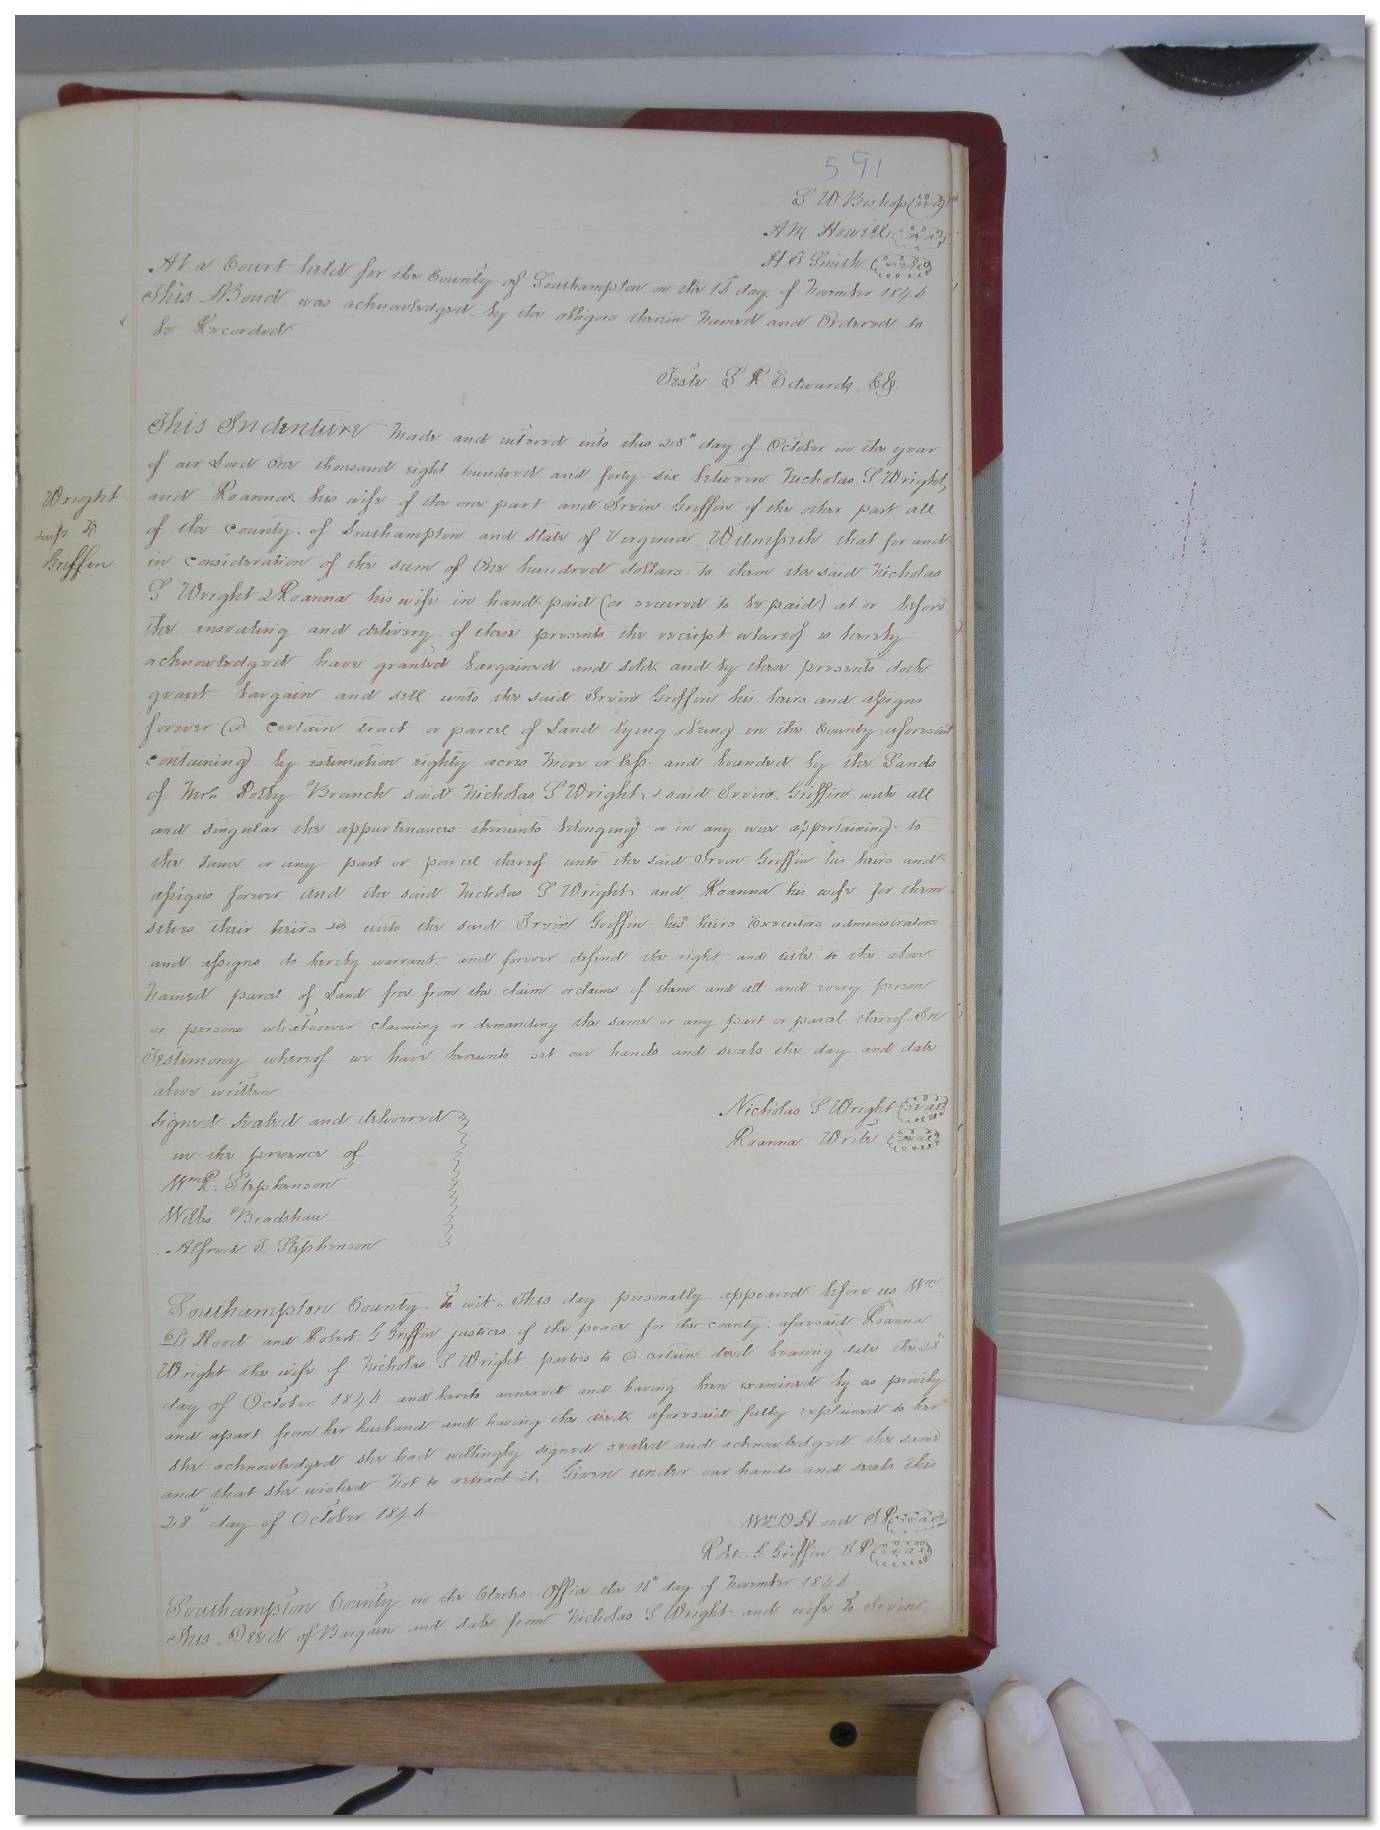 591
S W Bishop (seal)
A M Howell (seal)
H J Smith (seal)
At a Court held for the County of Southampton on the 16 day of November 1846
This Bond was acknowledged by the obligors therein Named and Ordered to
be Recorded
Teste L R Edwards Clk
This Indenture Made and entered into this 28th day of October in the year
of our Lord One thousand eight hundred and forty six between Nicholas S Wright
and Roanna his wife of the one part and Irvin Griffin of the other part all
Wright
to
Griffin
of the county of Southampton and State of Virginia Witnesseth that for and
in consideration of the sum of One hundred dollars to them the said Nicholas
S Wright & Roanna his wife in hand paid (or secured to be paid) at or before
the ensealing and delivery of these presents the receipt whereof is hereby
acknowledged have granted bargained and sold and by these presents doth
grant bargain and sell unto the said Irvin Griffin his heirs and assigns
forever a certain tract or parcel of Land lying & being in the County aforesaid
containing by estimation eighty acres More or less and bounded by the Lands
of Mrs. Polly Branch said Nicholas S Wright & said Irvin Griffin with all
and singular the appurtenances thereunto belonging or in any wise appertaining to
the same or any part or parcel thereof unto the said Irvin Griffin his heirs and
assigns forever And the said Nicholas S Wright and Roanna his wife for them
selves their heirs &c unto the said Irvin Griffin his heirs Executors administrators
and assigns do hereby warrant and forever defend the right and title to the above
Named parcel of Land free from the claim or claims of them and all and every person
or persons whatsoever claiming or demanding the same or any part or parcel thereof In
Testimony whereof we have hereunto set our hands and seals the day and date
above written
Signed sealed and delivered
in the presence of
Wm R. Stephenson
Willis Bradshaw
Alfred J. Stephenson
Nicholas S Wright (seal)
Roanna Write (seal)
Southampton County To wit, This day personally appeared before us Wm
D Hood and Robert G Griffin justices of the peace for the county aforesaid Roanna
Wright the wife of Nicholas S Wright parties to a certain deed bearing date the 28th
day of October 1846 and hereto annexed and having been examined by us privily
and apart from her husband and having the deed aforesaid fully explained to her
she acknowledged she had willingly signed sealed and acknowledged the same
and that she wished Not to retract it, Given under our hands and seals this
28th day of October 1846
Wm D Hood J P (seal)
Robt. G Griffin J P (seal)
Southampton County in the Clerks Office the 16th day of November 1846
This Deed of Bargain and sale from Nicholas S Wright and wife To Irvin